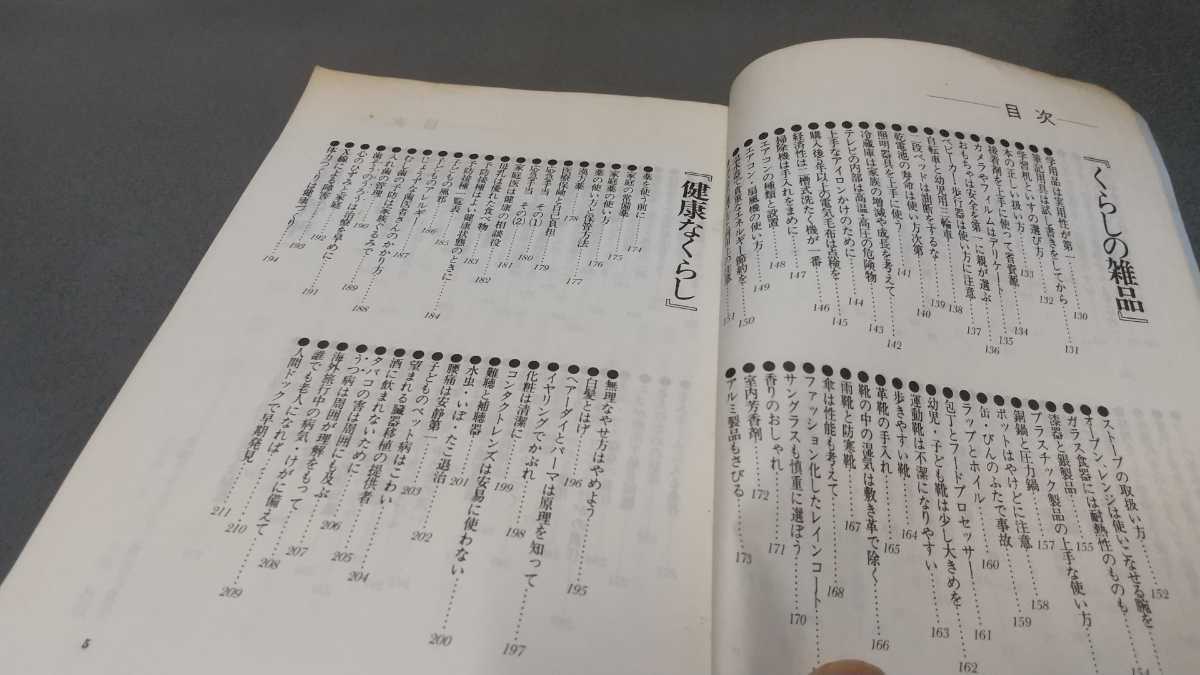 目次
『くらしの雑品』
●学用品は実用性が第一……130
●筆記用具は試し書きをしてから……131
●学習机といすの選び方……132
●本の正しい扱い方……133
●接着剤を上手に使って省資源……134
●カメラやフィルムはデリケート……135
●おもちゃは安全を第一に親が選ぶ……136
●ベビーカー・歩行器は使い方に注意……137
●自転車と幼児用三輪車……138
●二段ベッドは油断をするな……139
●乾電池の寿命は使い方次第……140
●照明器具を上手に使う……141
●冷蔵庫は家族の増減や成長を考えて……142
●テレビの内部は高温・高圧の危険物……143
●上手なアイロンかけのために……144
●購入後2年以上の電気毛布は点検を……145
●経済性は二槽式洗たく機が一番……146
●掃除機は手入れをまめに……147
●エアコンの種類と設置……148
●エアコン・扇風機の使い方……149
エネルギー節約を……150
151
●ストーブの取扱い方……152
●オーブン・レンジは使いこなせる腕を
●ガラス食器には耐熱性のものも……154
●漆器と銀製品……155
●プラスチック製品の上手な使い方
●銅鍋と圧力鍋……157
●ポットはやけどに注意……158
●缶・びんのふたで事故……159
●ラップとホイル……160
●包丁とフードプロセッサー……161
●幼児・子ども靴は少し大きめを……162
●運動靴は不潔になりやすい……163
●歩きやすい靴……164
●革靴の手入れ……165
●靴の中の湿気は敷き革で除く……166
●雨靴と防寒靴……167
●傘は性能も考えて……168
●ファッション化したレインコート
●サングラスも慎重に選ぼう……170
●香りのおしゃれ……171
●室内芳香剤……172
●アルミ製品もさびる……173
『健康なくらし』
●薬を使う前に……174
●家庭の常備薬……175
●家庭薬の使い方……176
●薬の使い方と保管方法……177
●強精薬……178
●医療保障と自己負担……179
●応急手当 その(1)……180
●応急手当 その(2)
●家庭医は健康の相談役……181
●母乳は優れた食べ物……182
●予防接種はよい健康状態のときに
●予防接種一覧表……183
●子どもの風邪……184
●子どものアレルギー……185
●じょうずな歯医者さんのかかり方……186
●むし歯の予防は家族ぐるみで……187
●入れ歯の管理……188
●歯そうのうろうは治療を早めに……189
190
●X線による障害……191
192
●体力づくりは健康づくり……193
194
●無理なやせ方はやめよう……195
●白髪とはげ……196
●ヘアーダイとパーマは原理を知って……197
●イヤリングでかぶれ……198
●化粧は清潔に……199
●コンタクトレンズは安易に使わない……200
●難聴と補聴器……201
●水虫・いぼ・たこ退治……202
●腰痛は安静第一……203
●子どものペット病はこわい……204
●望まれる臓器移植の提供者……205
●酒に飲まれないために……206
●タバコの害は周囲にも及ぶ……207
●うつ病は周囲が理解をもって……208
●海外旅行中の病気・けがに備えて……209
●誰でも老人になれば……210
●人間ドックで早期発見……211
5